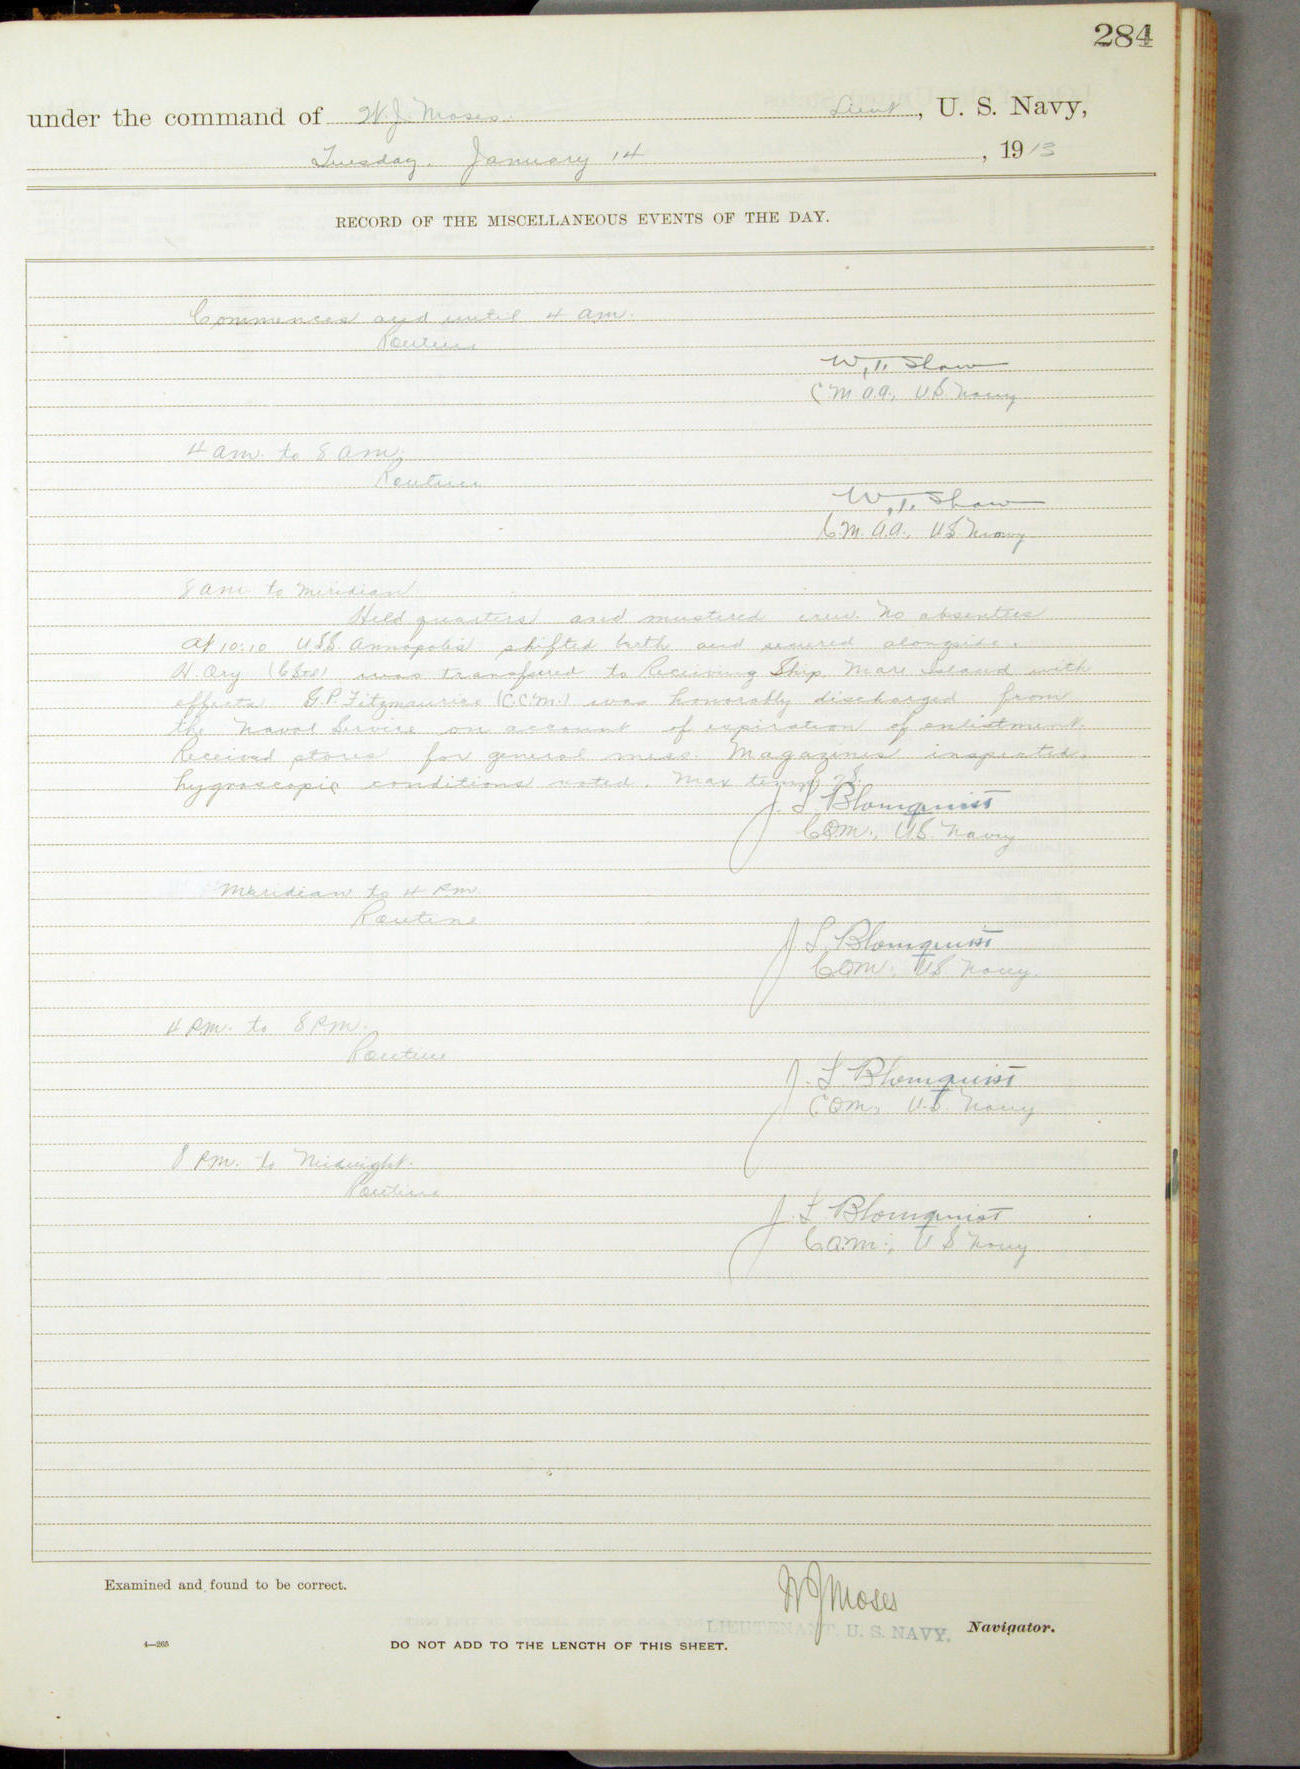 284
under the command of W. J. Moses. Lieut, U. S. Navy,
Tuesday. January 14, 1913
RECORD OF THE MISCELLANEOUS EVENTS OF THE DAY.
Commences and until 4 am.
Routine
W. T. Shaw
C.M.A.A., U.S. Navy
4 am. to 8 am.
Routine
W. T. Shaw
C.M.A.A., U.S. Navy
8 am to Meridian
Held quarters and mustered crew. No absentees
At 10:10 U.S.S. Annapolis shifted berth and secured alongside.
H. Ory was transfered to Receiving Ship Mare Island with
effects. G.P. Fitzmaurice (C.C.M.) was honorably discharged from
the Naval Service on account of expiration of enlistment.
Received stores for general mess. Magazines inspected,
hygroscopic conditions noted. Max temp 78.
J. L. Blomquist
C.G.M., U.S. Navy
Meridian to 4 P.M.
Routine
J. L. Blomquist
C.G.M., U.S. Navy.
4 P.M. to 8 P.M.
Routine
J. L. Blomquist
C.G.M., U.S. Navy
8 P.M. to Midnight.
Routine
J. L. Blomquist
C.G.M., U.S. Navy
Examined and found to be correct.
W J Moses
LIEUTENANT. U. S. NAVY.
Navigator.
4—265
DO NOT ADD TO THE LENGTH OF THIS SHEET.